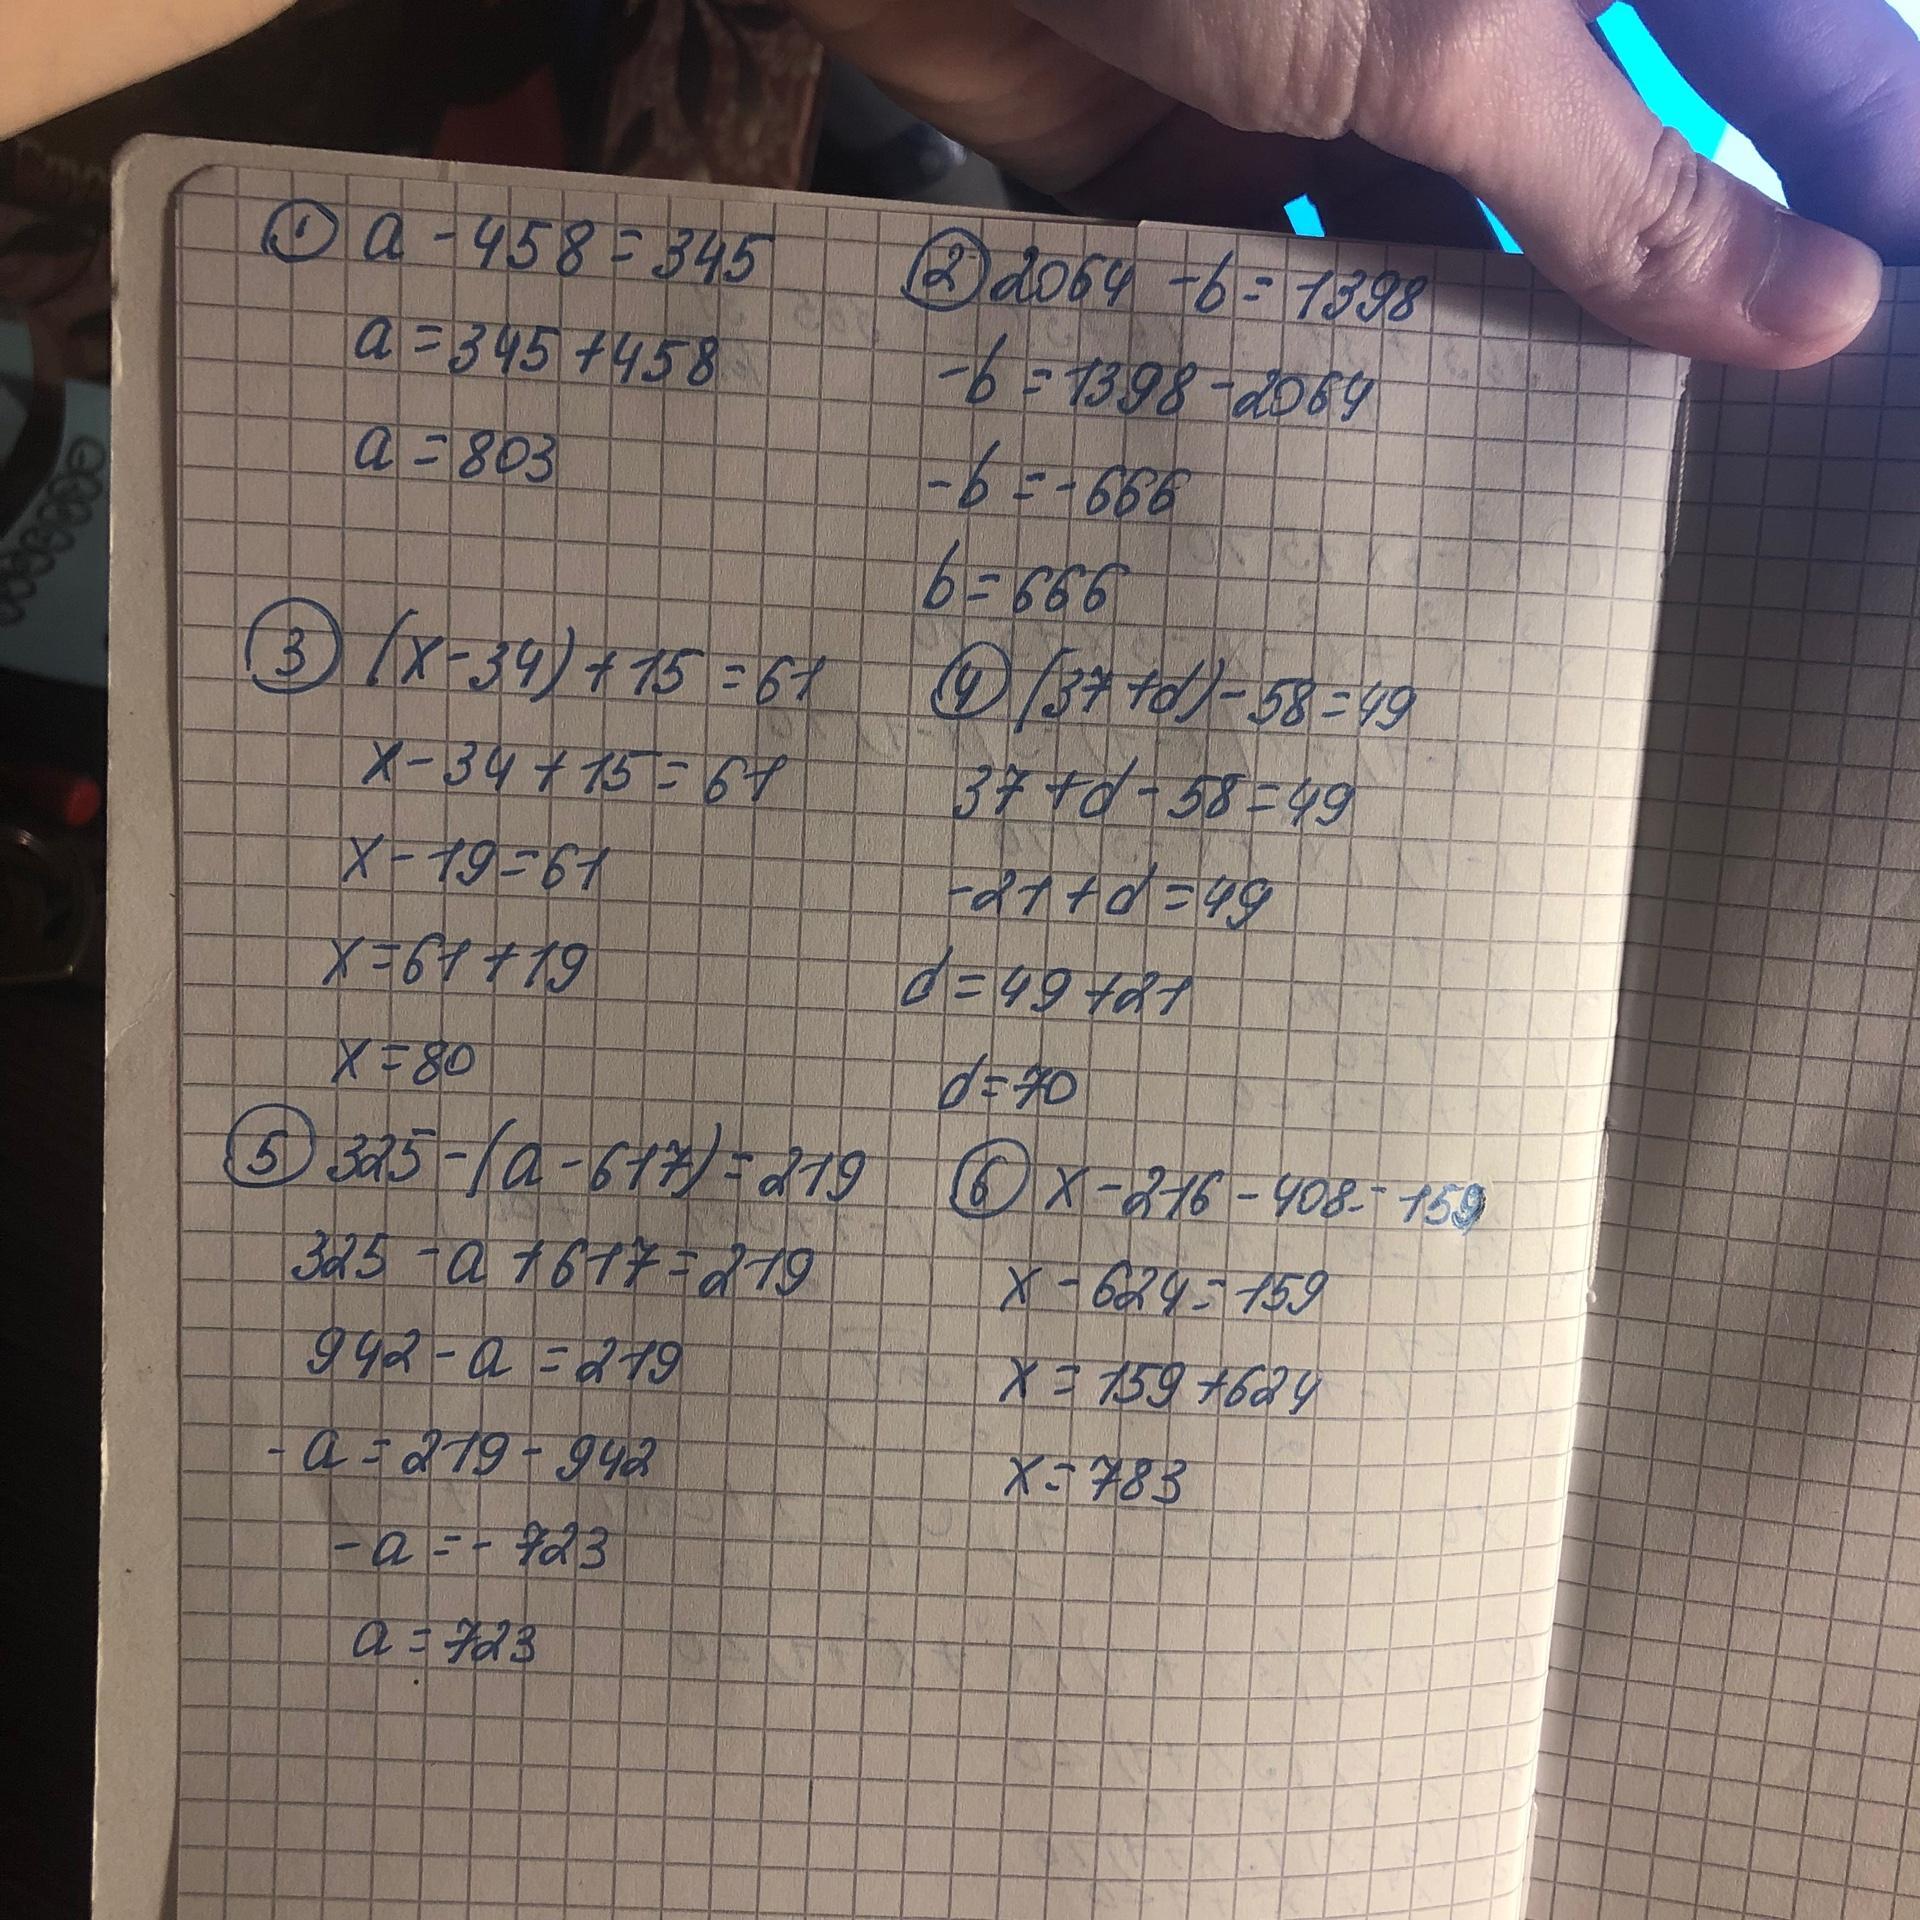 ① a - 458 = 345
a = 345 + 458
a = 803
② 2064 - b = 1398
-b = 1398 - 2064
-b = -666
b = 666
③ (x - 34) + 15 = 61
x - 34 + 15 = 61
x - 19 = 61
x = 61 + 19
x = 80
④ (37 + d) - 58 = 49
37 + d - 58 = 49
-21 + d = 49
d = 49 + 21
d = 70
⑤ 325 - (a - 617) = 219
325 - a + 617 = 219
942 - a = 219
-a = 219 - 942
-a = -723
a = 723
⑥ x - 216 - 408 = 159
x - 624 = 159
x = 159 + 624
x = 783